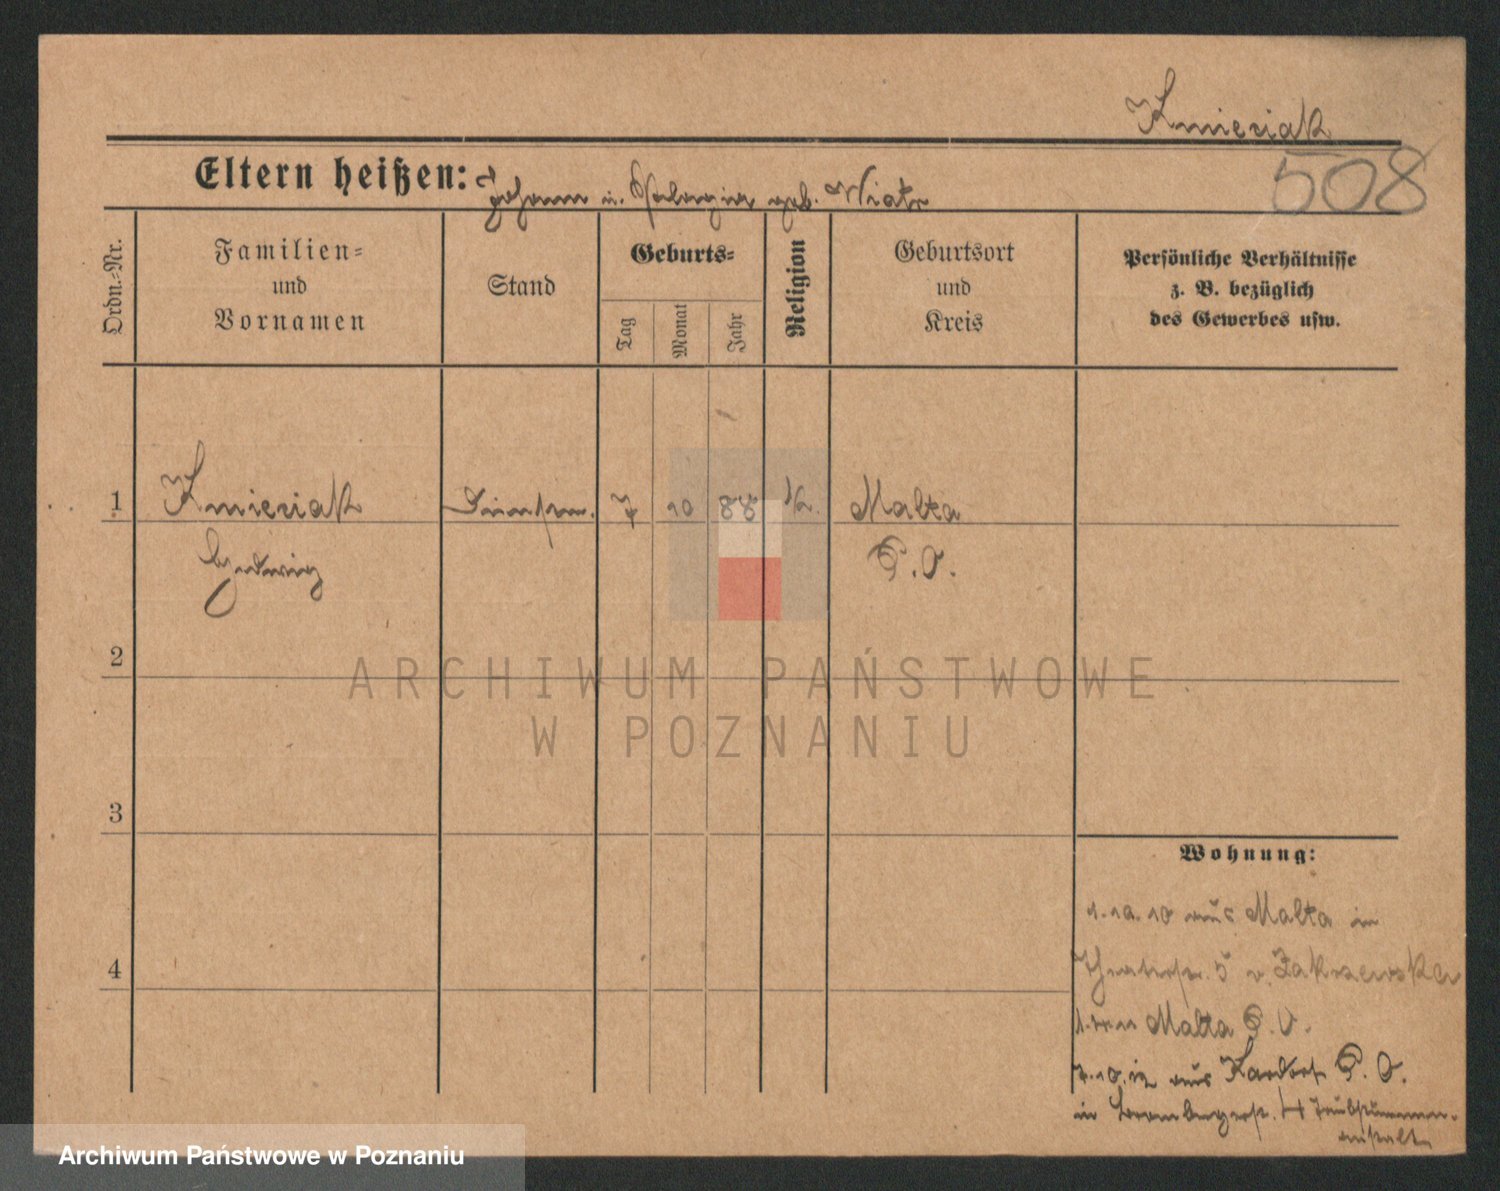 Kmieciak
508
Eltern heißen: Johann u. Pelagia geb. Wiatr
Ordn.-Nr.
Familien-
und
Vornamen
Stand
Geburts-
Tag
Monat
Jahr
Religion
Geburtsort
und
Kreis
Persönliche Verhältnisse
z. B. bezüglich
des Gewerbes usw.
1
Kmieciak
Hedwig
Dienstm.
7
10
88
k.
Malta
P. O.
2
3
4
Wohnung:
1.10.10 aus Malta in
Theaterstr. 5 v. Zakrzewska
Malta P. O.
7.10.12 aus P. O.
in Brombergerstr. Taubstummen-
anstalt
ARCHIWUM PAŃSTWOWE
W POZNANIU
Archiwum Państwowe w Poznaniu